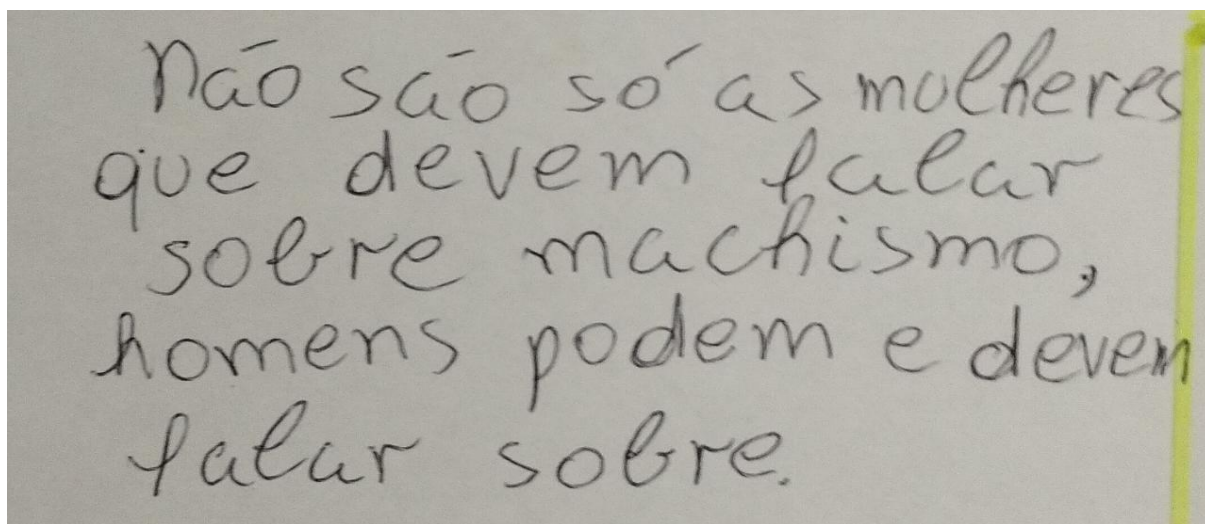 Não são só as mulheres
que devem falar
sobre machismo,
homens podem e devem
falar sobre.